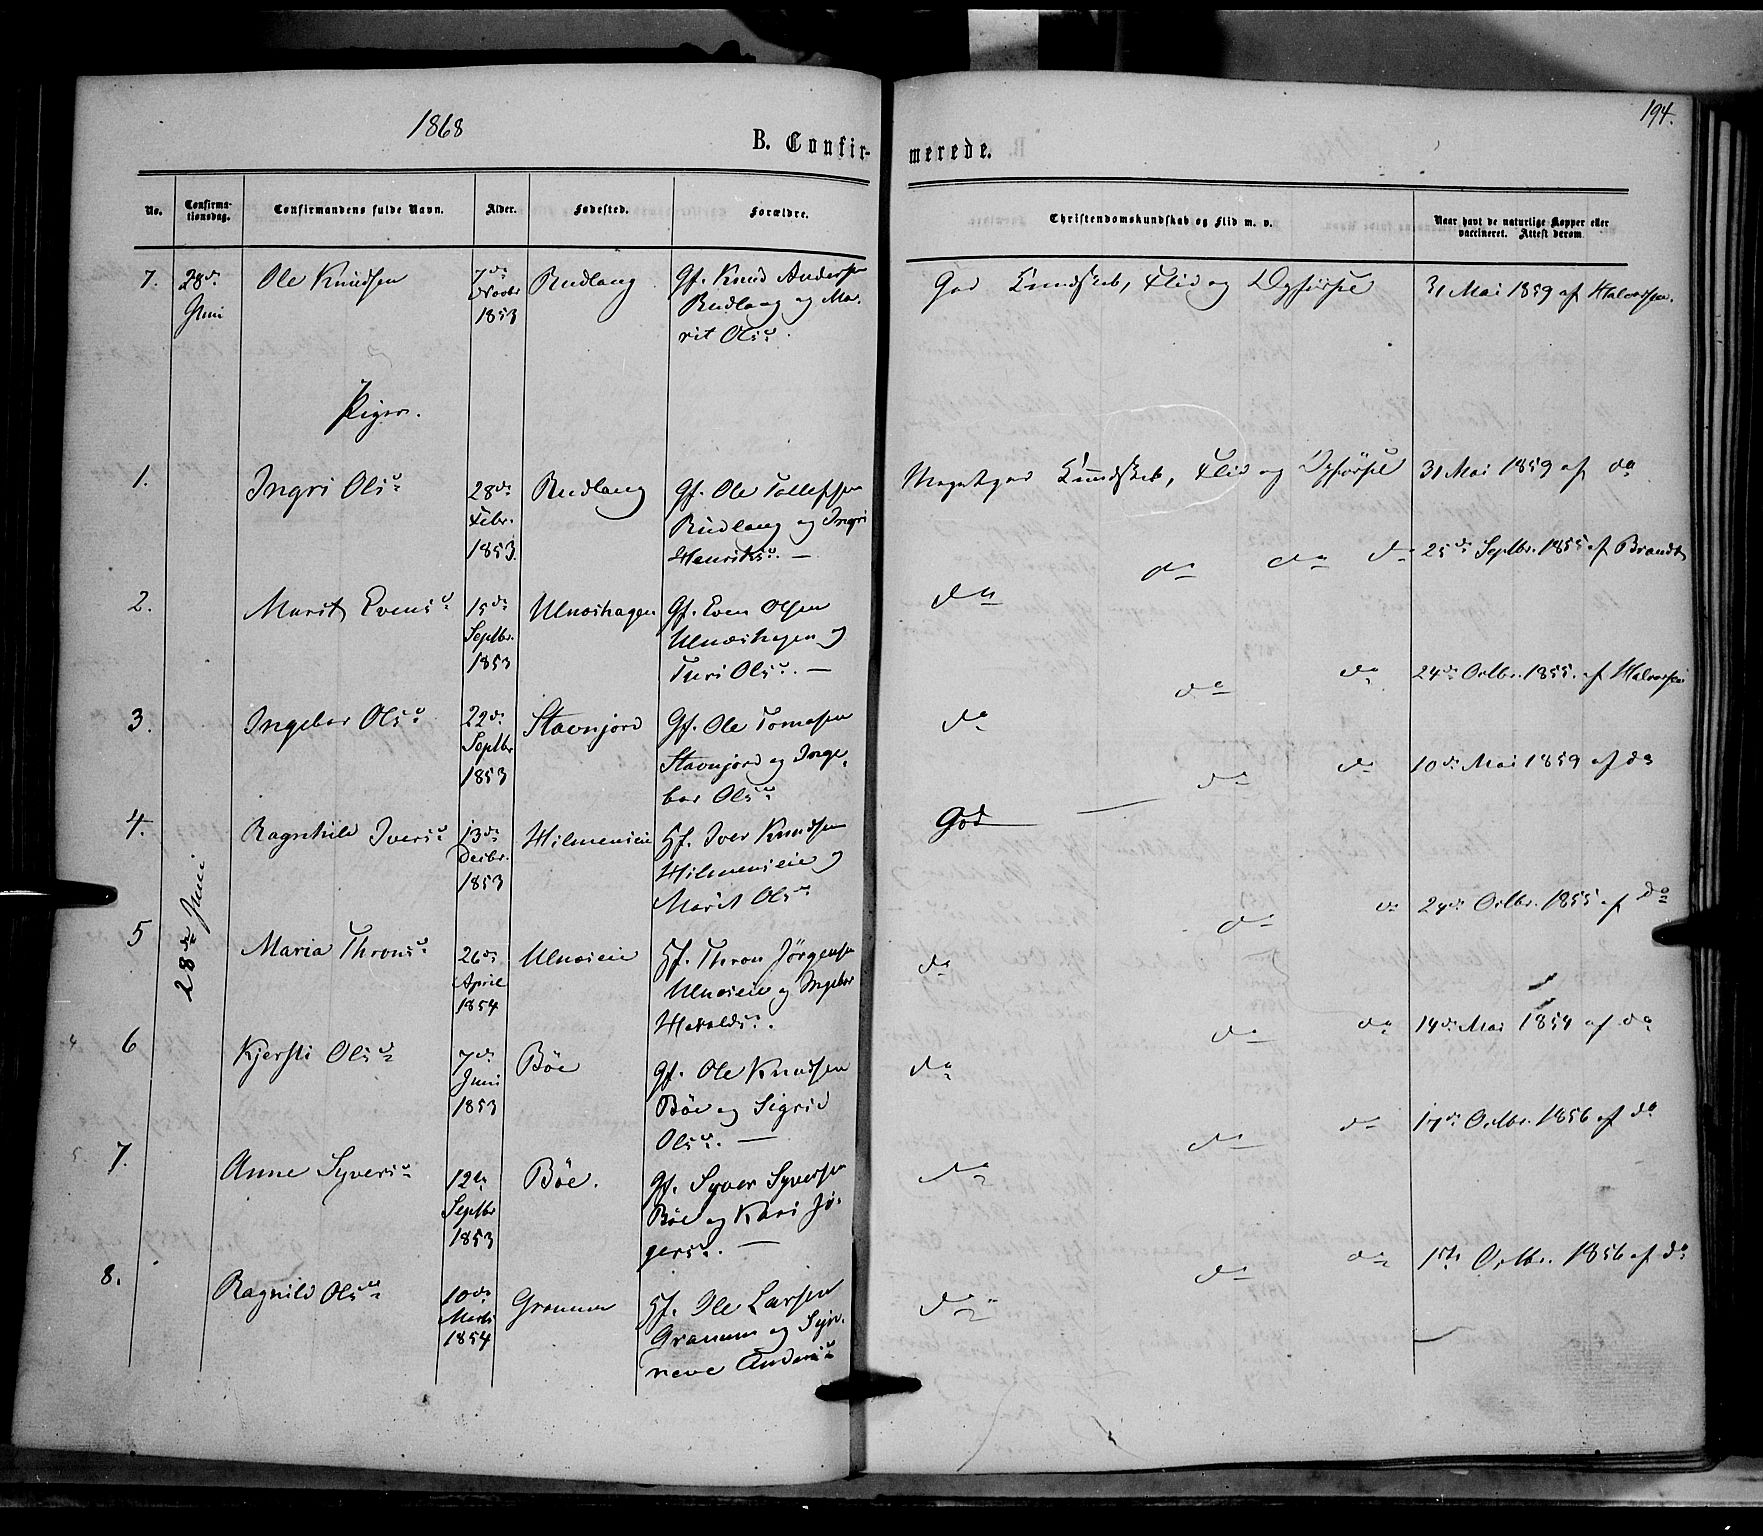 1868
194.
B. Confir-
merede.
No.
Confirma-
tionsdag.
Confirmandens fulde Navn.
Alder.
Fødested.
Forældre.
Christendomskundskab og Flid m. v.
Naar havt de naturlige Kopper eller
vaccineret. Attest derom.
7. 28de Juni
Ole Knudsen
7de Novbr 1853
Rudlang
Gf. Knud Andersen
Rudlang og Ma-
rit Olsd.
God Kundskab, Flid og Opførsel
31 Mai 1859 af Halvorsen.
Piger.
28de Juni
1.
Ingri Olsd
28de Febr. 1853
Rudlang
Gf. Ole Tollefsen
Rudlang og Ingri
Henriksd. —
Meget god Kundskab, Flid og Opførsel
31 Mai 1859 af do
2.
Marit Evensd
15de Septbr. 1853
Ulnæshagen
Gf. Even Olsen
Ulnæshagen og
Turi Olsd. —
do do do do
25de Septbr. 1855 af Brandt
3.
Ingebor Olsd
22de Septbr 1853
Stavnjord
Gf. Ole Tomasen
Stavnjord og Inge-
bor Olsd
do do do
24de Octbr. 1855. af Halvorsen
4.
Ragnhild Iversd
13de Decbr. 1853
Hilmeneie
Hf. Iver Knudsen
Hilmeneie og
Marit Olsd
God — do do
10de Mai 1859 af do
5
Maria Thronsd
26de April 1854
Ulnæseie
Hf. Thron Jörgensen
Ulnæseie og Ingebor
Haraldsd.
do do do
24de Octbr. 1855 af do
6
Kjersti Olsd
7de Juni 1853
Böe
Gf. Ole Knudsen
Böe og Sigrid
Olsd. —
do do do
14de Mai 1854 af do
7.
Anne Syversd
12te Septbr 1853
Böe.
Gf. Syver Syversen
Böe og Kari Jö-
gersd. —
do do do
17de Octbr. 1856 af do
8.
Ragnild Olsd
10de Marts 1854
Granum
Hf. Ole Larsen
Granum og Syn-
neve Andersd
do do do
1ste Octbr. 1856 af do